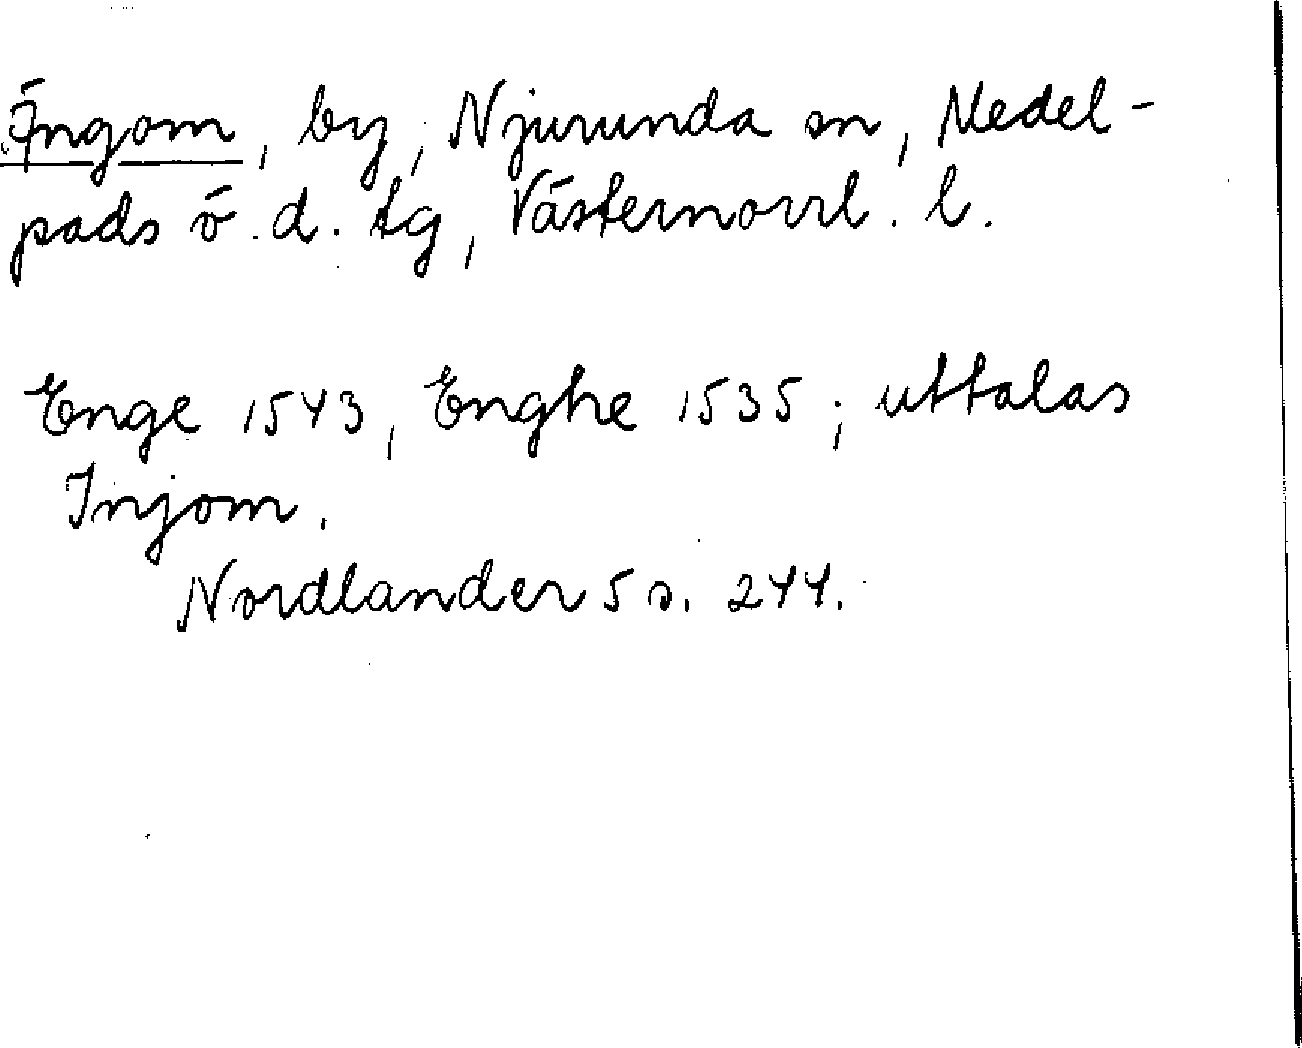 Ängom, by, Njurunda sn, Medel-
pads ö. d. tg, Västernorrl. l.
Enge 1543, Enghe 1535; uttalas
Injom.
Nordlander 5 s. 244.